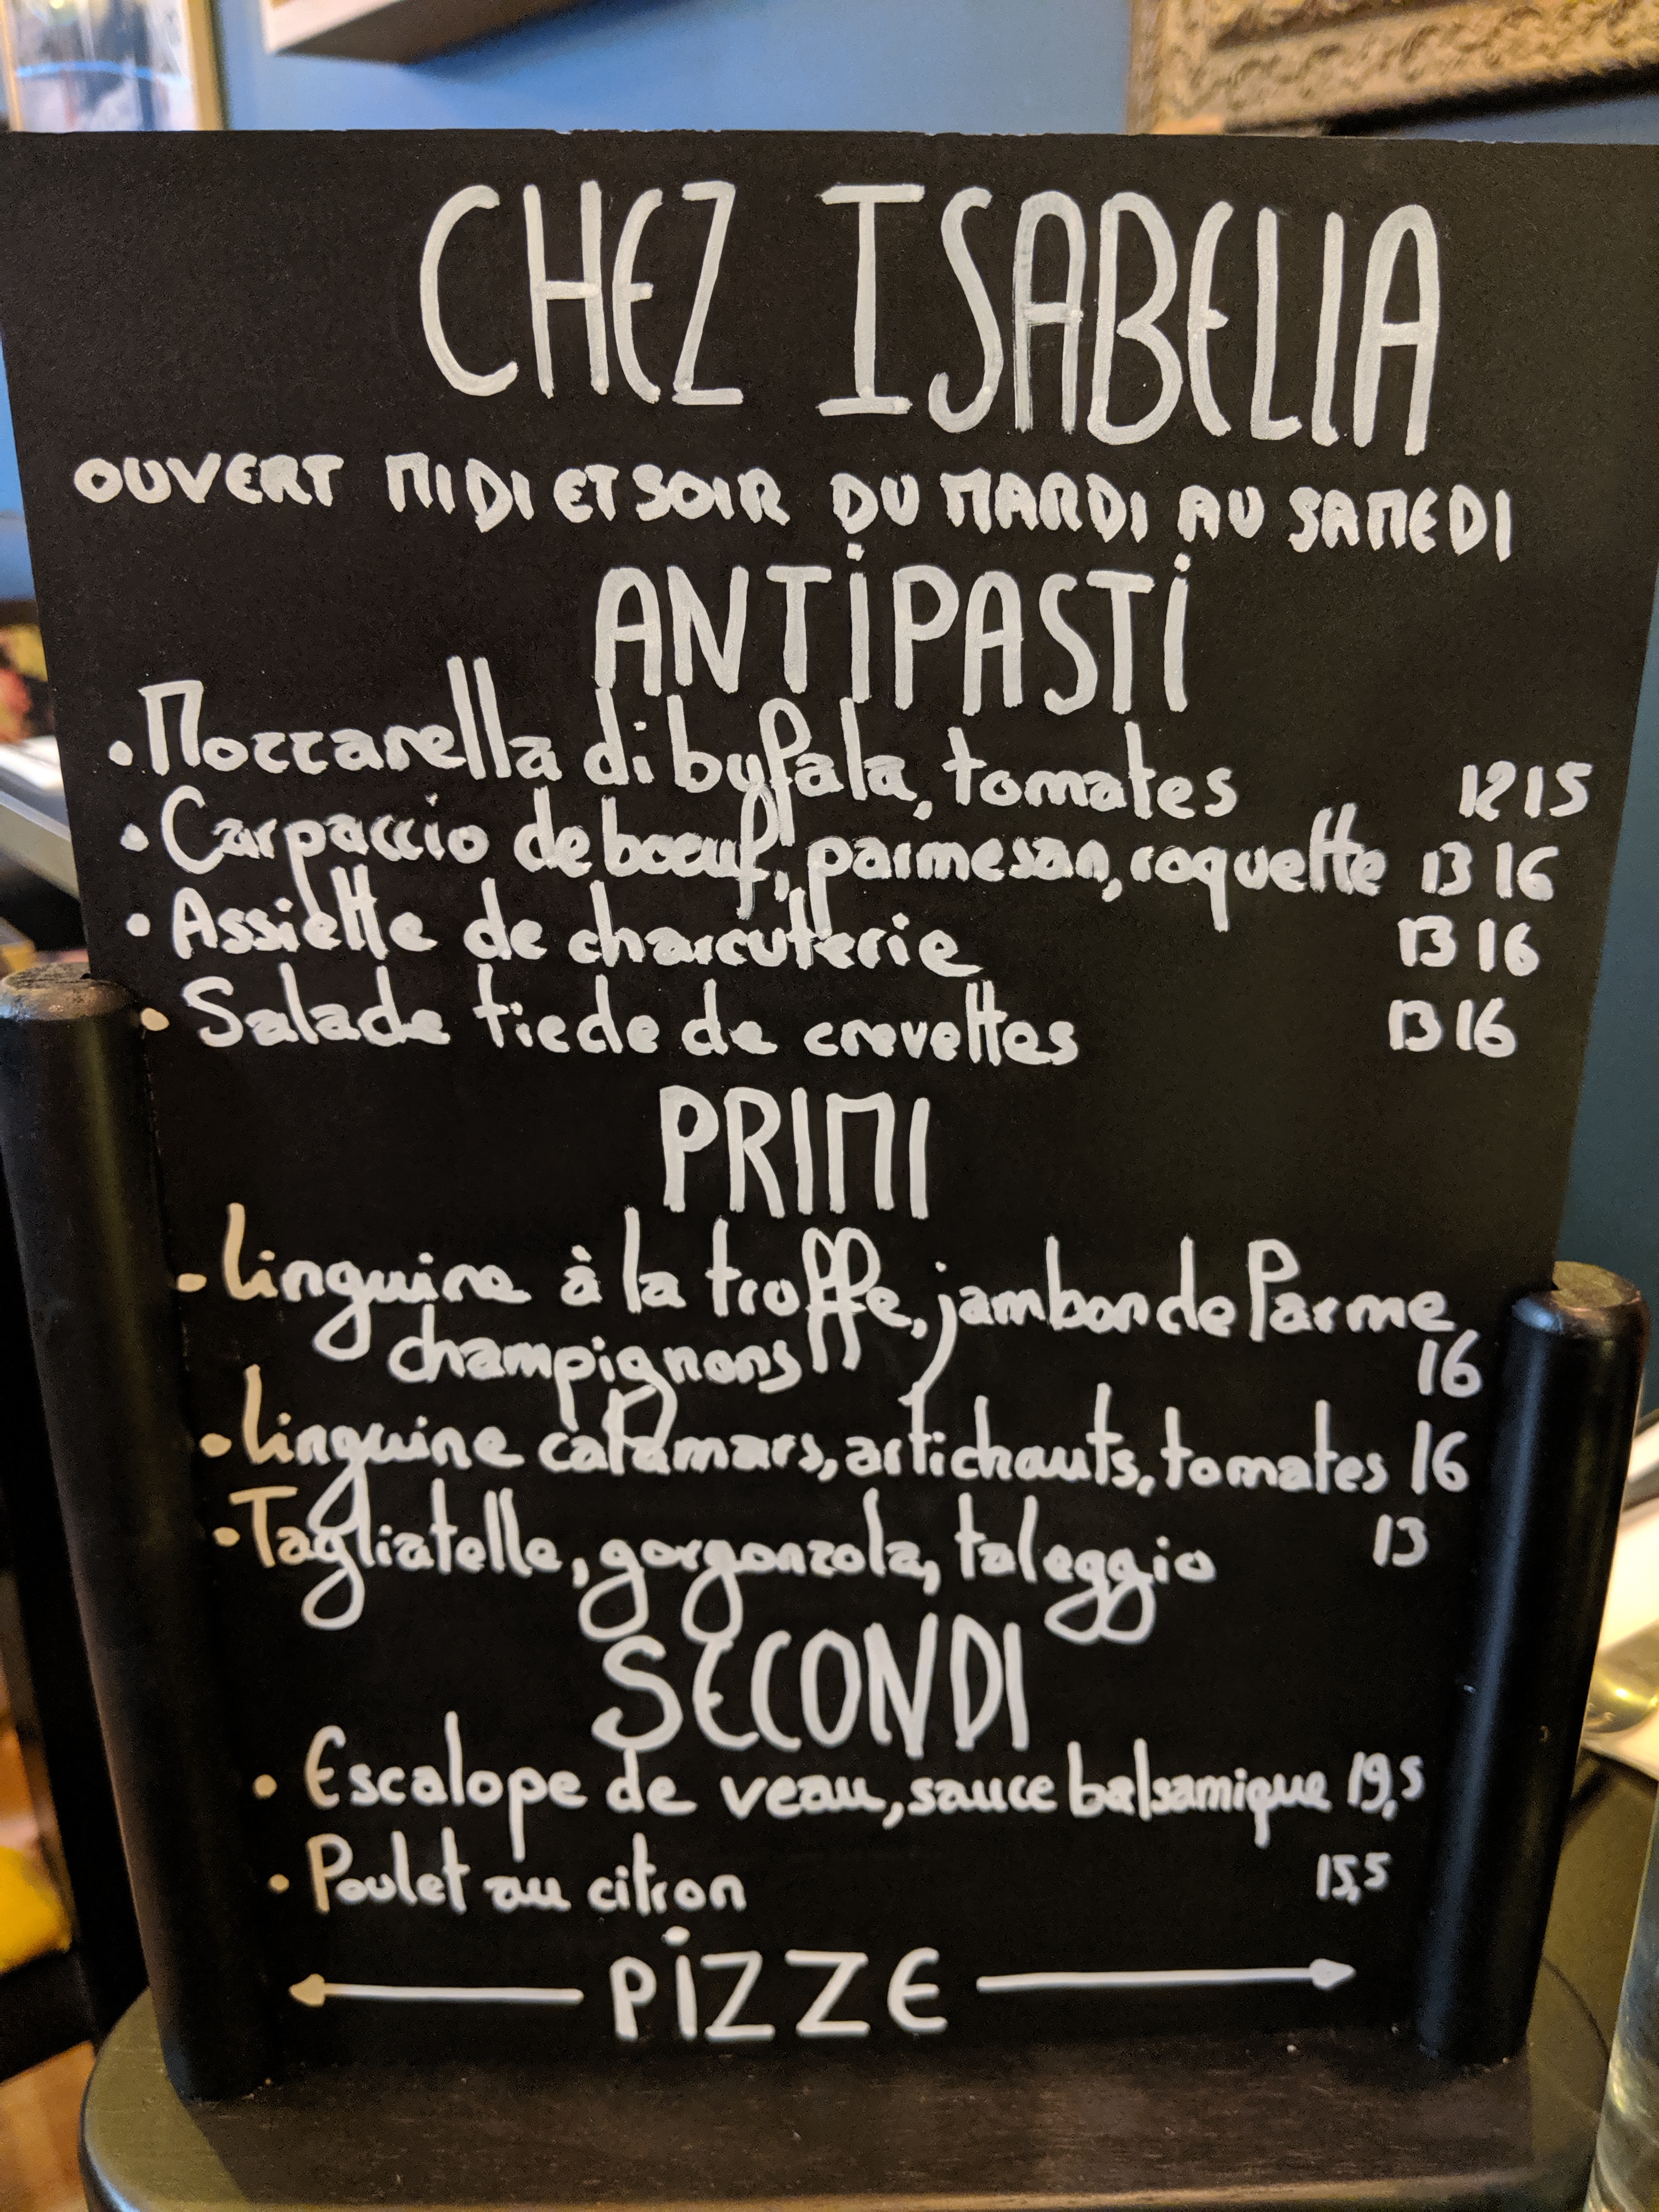 CHEZ ISABELLA
OUVERT MIDI ET SOIR DU MARDI AU SAMEDI
ANTIPASTI
• Mozzarella di bufala, tomates 12 15
• Carpaccio de boeuf, parmesan, roquette 13 16
• Assiette de charcuterie 13 16
• Salade tiede de crevettes 13 16
PRIMI
• Linguine à la truffe, jambon de Parme
champignons 16
• Linguine calamars, artichauts, tomates 16
• Tagliatelle, gorgonzola, taleggio 13
SECONDI
• Escalope de veau, sauce balsamique 19,5
• Poulet au citron 15,5
← PIZZE →